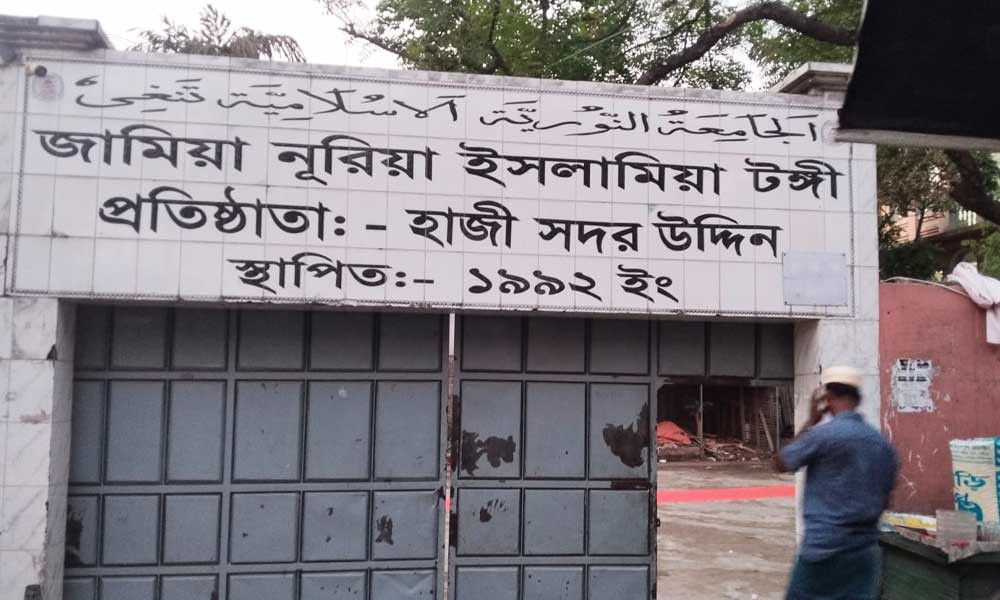 الجامعة النورية الاسلامية تنغي،
জামিয়া নূরিয়া ইসলামিয়া টঙ্গী
প্রতিষ্ঠাতা: - হাজী সদর উদ্দিন
স্থাপিত:- ১৯৯২ ইং